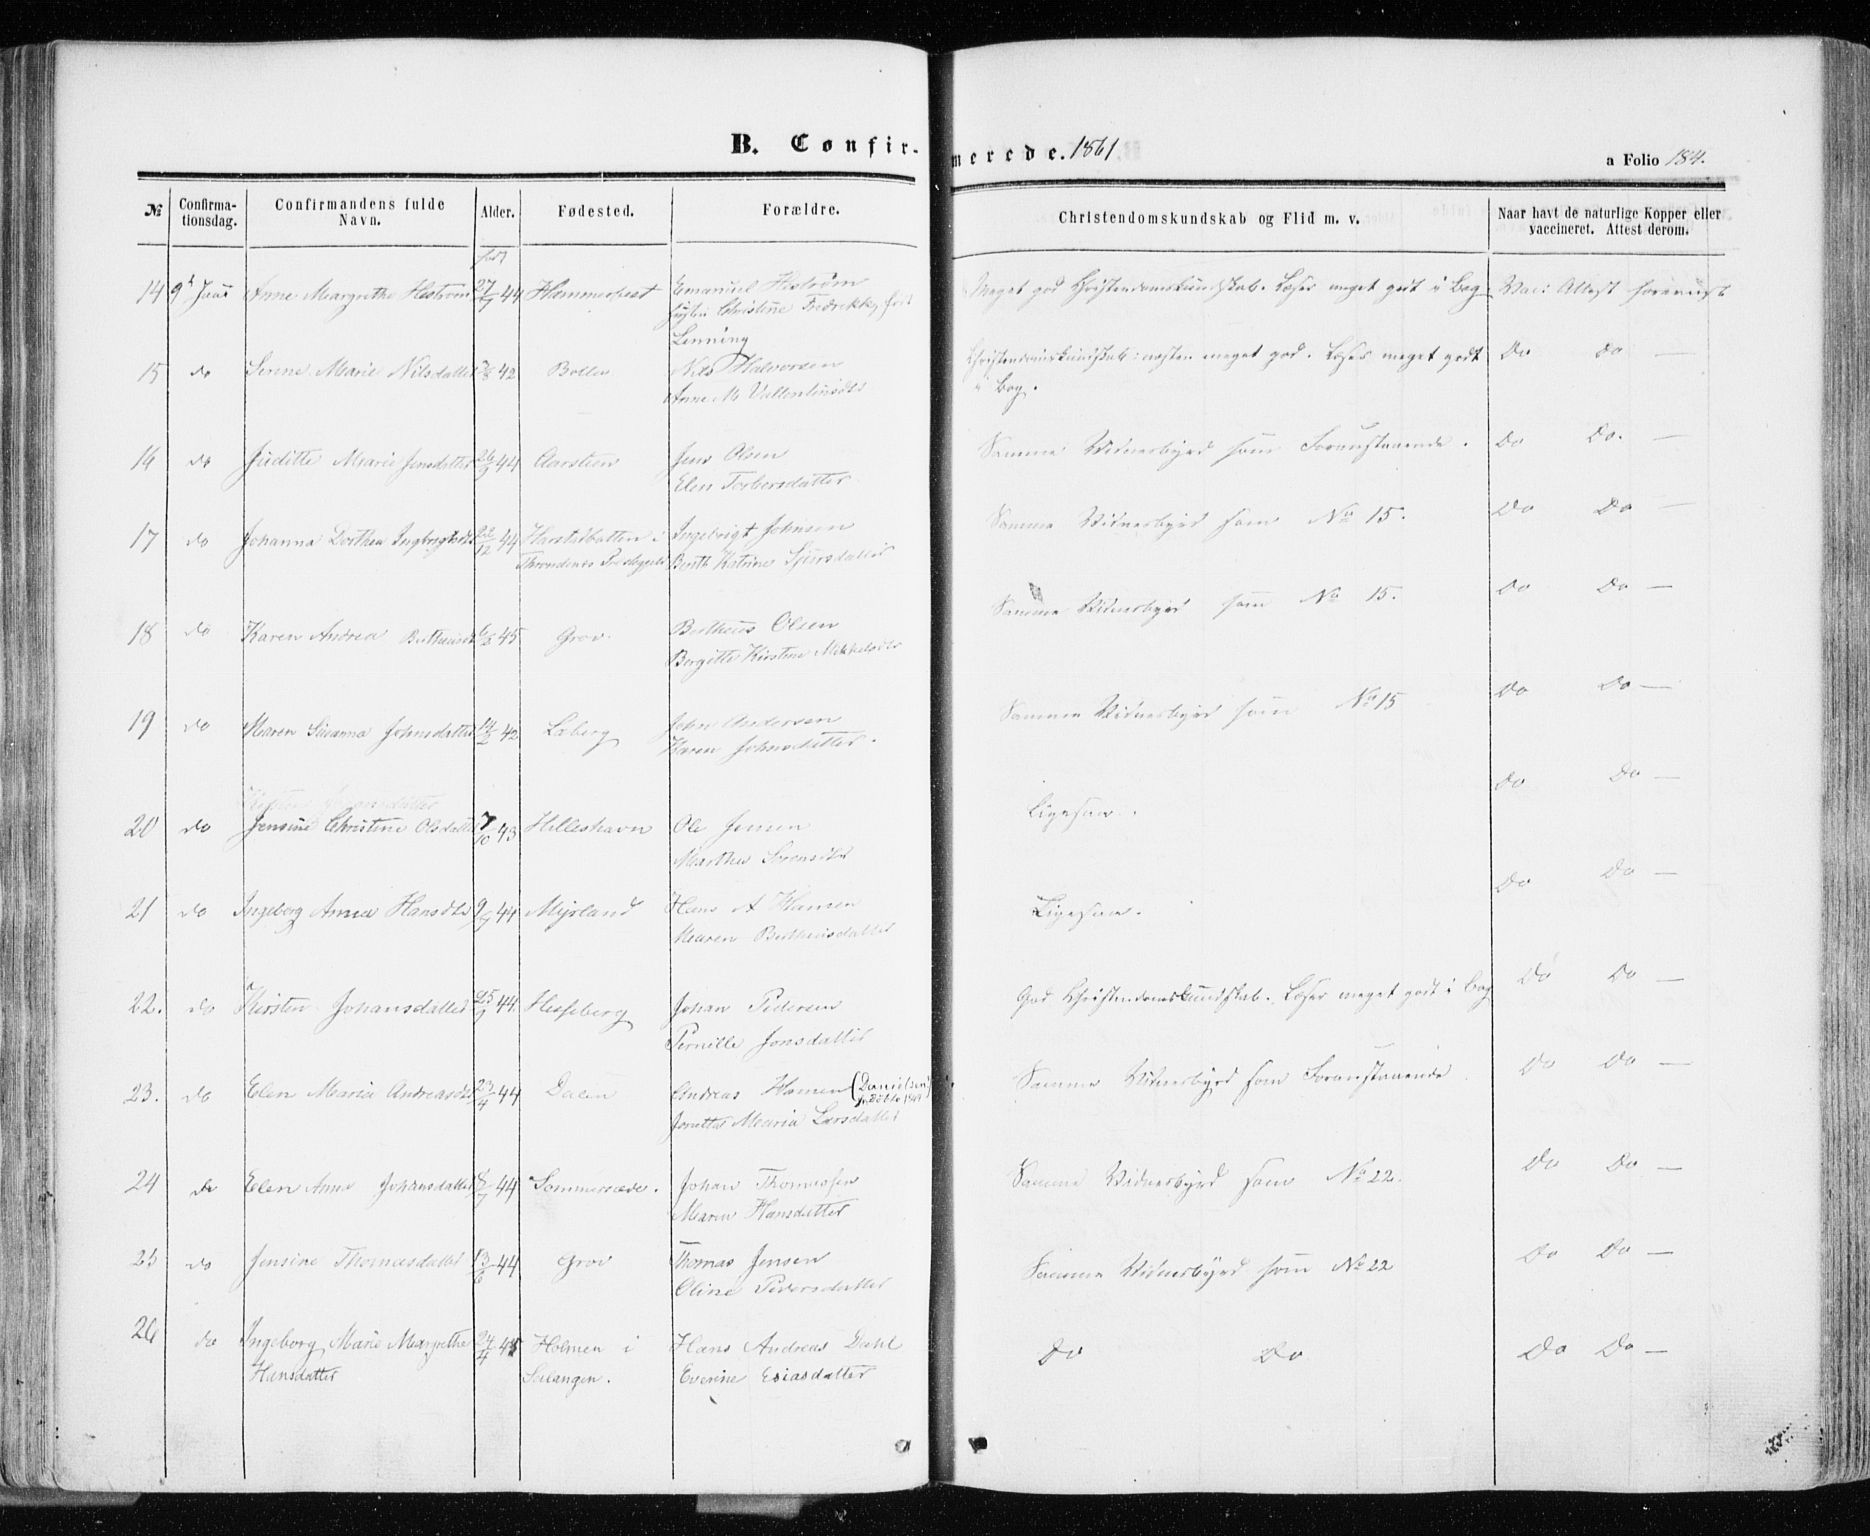 B. Confir-
merede. 1861
a Folio 184.
№
Confirma-
tionsdag.
Confirmandens fulde
Navn.
Alder.
Fødested.
Forældre.
Christendomskundskab og Flid m. v.
Naar havt de naturlige Kopper eller
vaccineret. Attest derom.
født
14 Anne Margrethe Histrøm 27/7 44 Hammerfest Emanuel Histrøm
Christine Fredrikke
Lenning
Meget god Christendomskundskab. Læser meget godt i Bog Vac: Attest foreviist
15 do Sirine Marie Nilsdatter 3/8 42 Bolle Nils Halvorsen
Anne M Vallentinsdtr
Christendomskundskab: næsten meget god. Læser meget godt Do Do —
i Bog.
16 do Juditte Marie Jensdatter 26/9 44 Aarsteen Jens Olsen
Elen Torbersdatter
Samme Vidnesbyrd som Foranstaaende. Do Do. —
17 do Johanna Dorthea Ingbrigtsdtr 23/12 44 Harstadbotten i Ingebrigt Johnsen
Throndenes Præstegjeld Berth Katrine Sjursdatter
Samme Vidnesbyrd som No 15. Do Do —
18 do Karen Andrea Bertheusdtr 6/3 45 Grov Bertheus Olsen
Birgitte Kirstine Mikkelsdtr
Samme Vidnesbyrd som No 15. Do Do —
19 do Maren Susanna Johnsdatter 14/2 42 Laberg John Andersen
Karen Johnsdatter.
Samme Vidnesbyrd som No 15 Do Do —
20 do Jensine Christine Olsdatter 7/10 43 Hilleshavn Ole Jensen
Marthe Sørensdtr
Ligesaa. Do Do —
21 do Ingeborg Anna Hansdtr 9/7 44 Myrland Hans A Hansen
Maren Bertheusdatter
Ligesaa. Do Do —
22. do Kirsten Johansdatter 25/9 44. Hesseberg Johan Pedersen
Pernille Jonsdatter
God Christendomskundskab. Læser meget godt i Bog Do Do —
23. do Elen Maria Andreasdtr 23/4 44 Dalen Andreas Hansen (Danielsen
Jonetta Maria Larsdatter
Samme Vidnesbyrd som Foranstaaende Do Do —
24 do Elen Anna Johansdatter 44 Sommersæde. Johan Thomassen
Maren Hansdatter
Samme Vidnesbyrd som No 22. Do Do —
25 do Jensine Thomasdatter 13/6 44 Grov Thomas Jensen
Oline Siversdatter
Samme Vidnesbyrd som No 22 Do Do —
26 do Ingeborg Marie Margrethe 24/4 45 Holmen i Hans Andreas Dahl
Hansdatter Salangen. Everine Esiasdatter
Do Do Do Do —